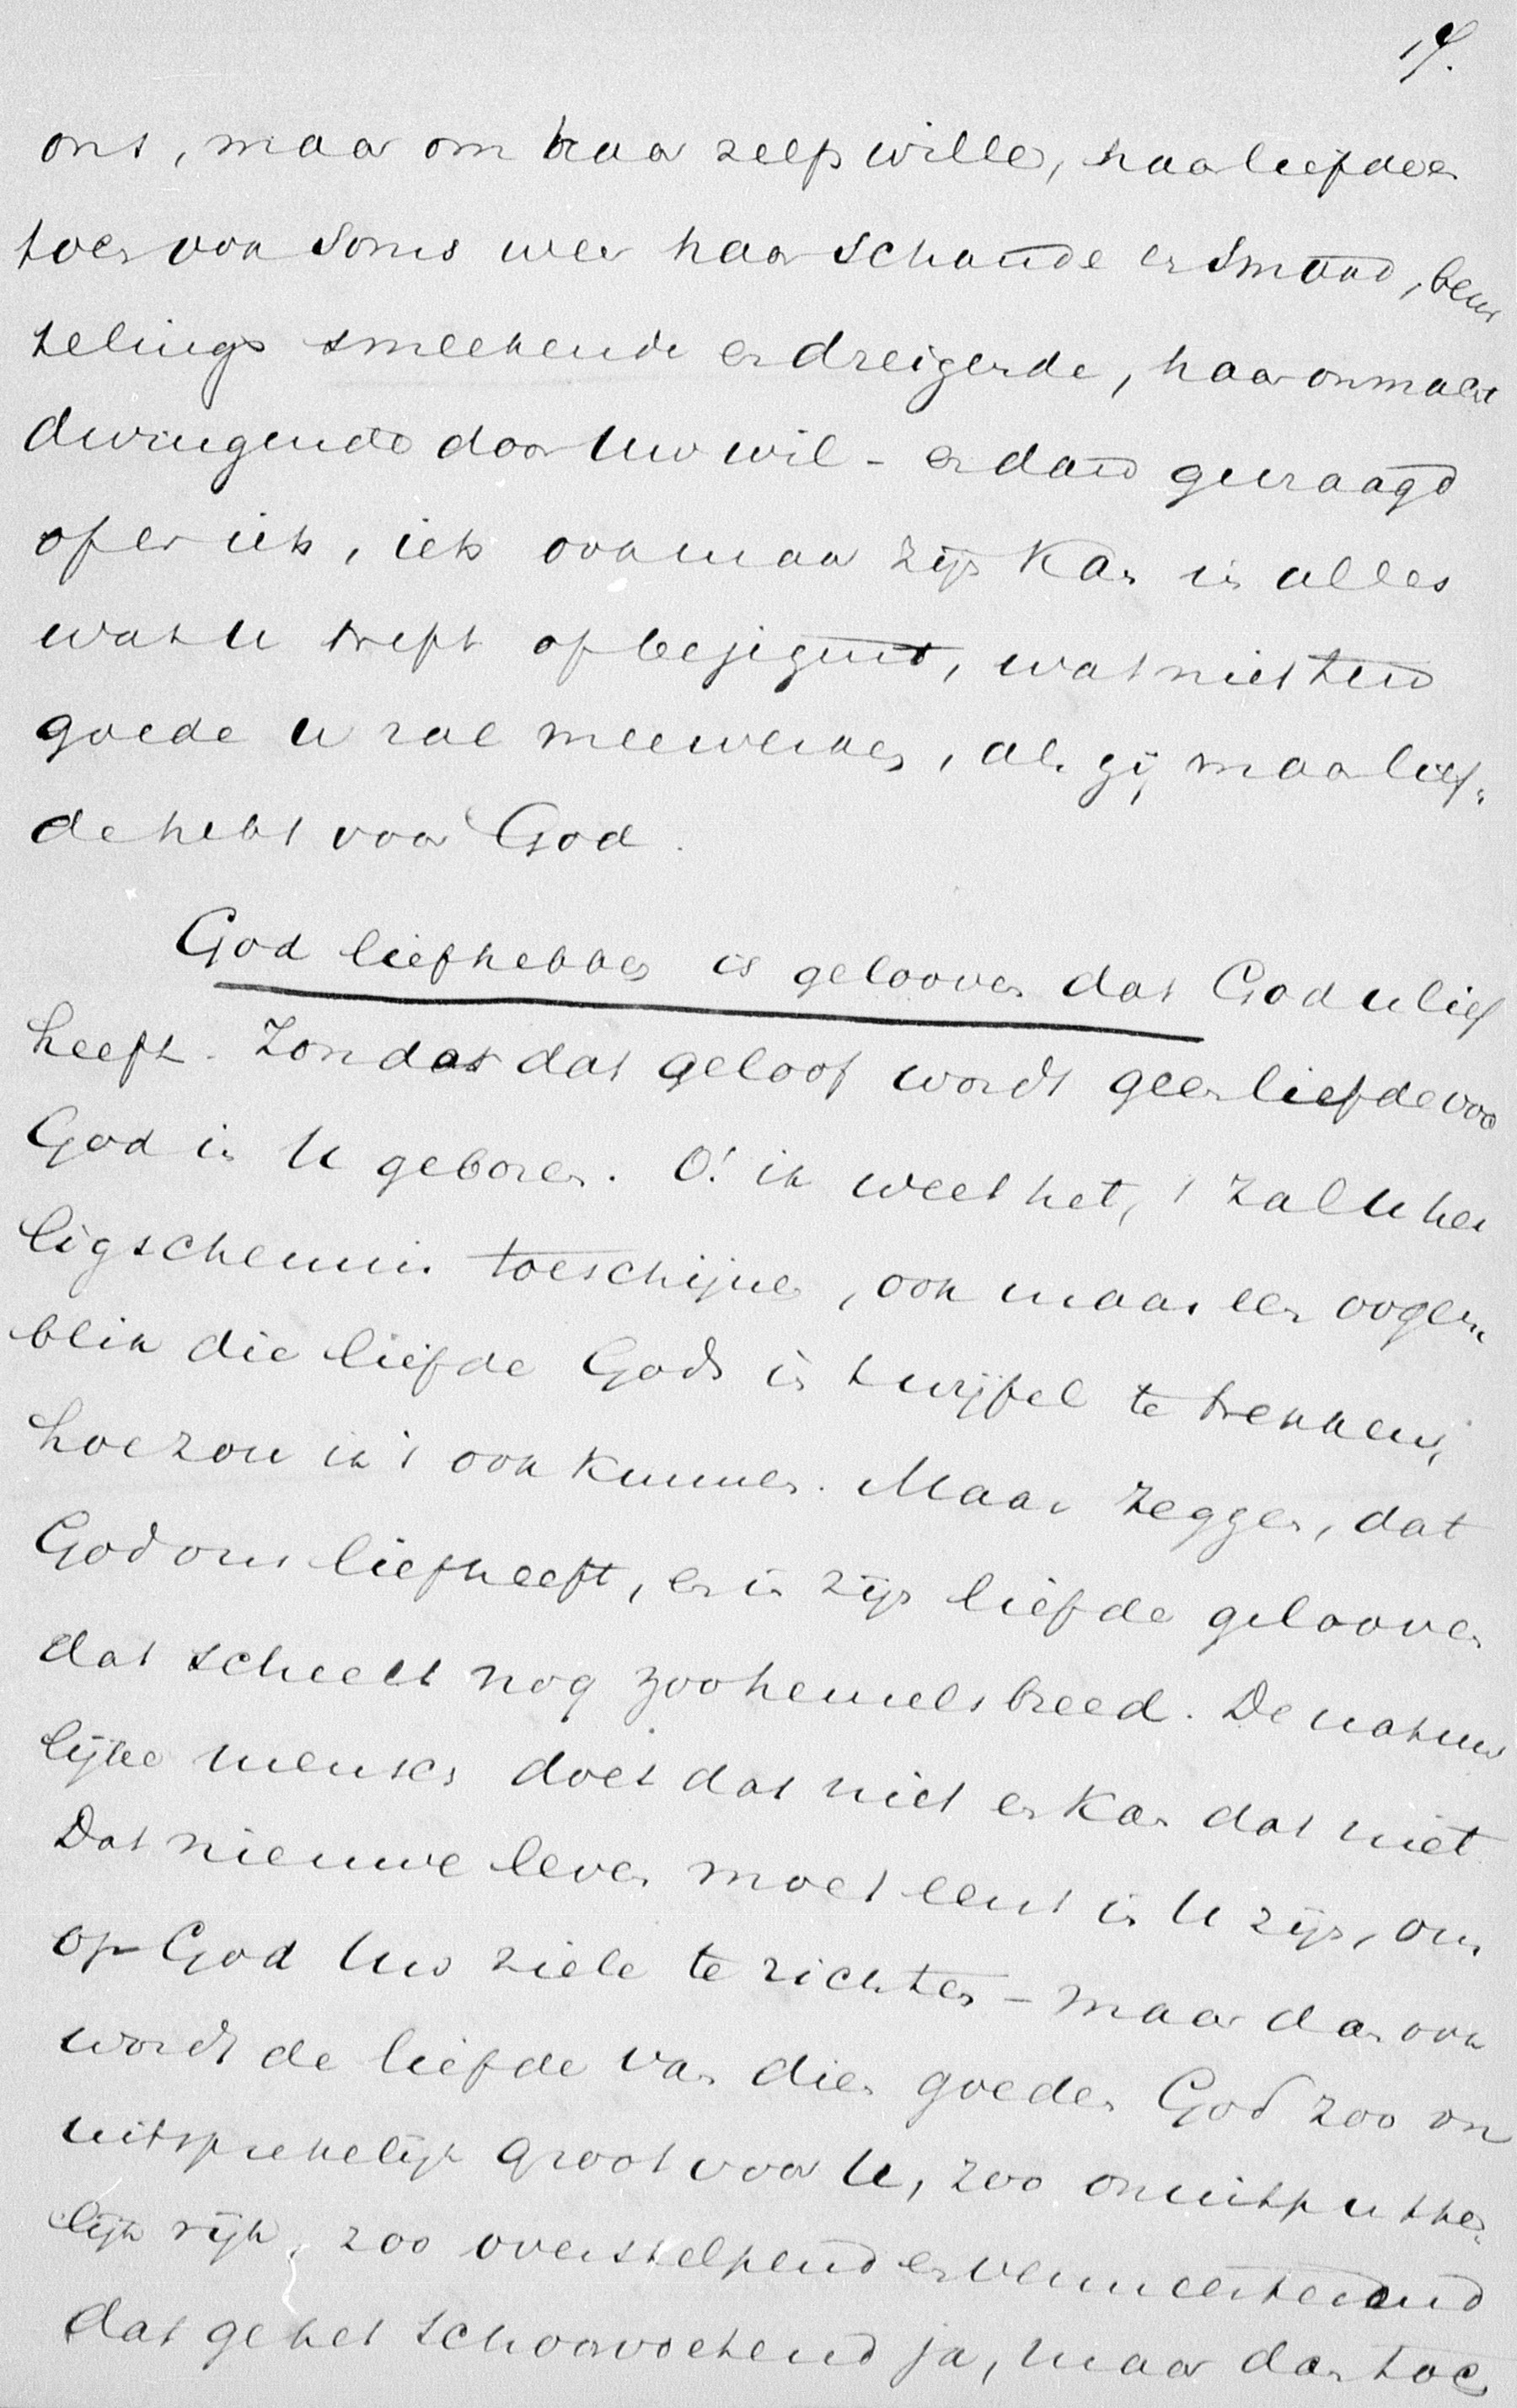 17.
ons, maar om haar zelfs wille, haar liefde en
toen ook soms weer haar schande en smaad, beur
telings smeekende en dreigende, haar onmacht
dwingende door Uw wil – en dan gevraagd
of er iets, iets ook maar zijn kan in alles
wat U treft of bejegend, wat niet ten
goede U zal meewerken, als gij maar lief„
de hebt voor God.
God liefhebben is gelooven dat God u lief
heeft. Zonder dat geloof wordt geen liefde voor
God in U geboren. O! ik weet het, 't zal U hei
ligschennis toeschijnen, ook maar een oogen„
blik die liefde Gods in twijfel te trekken;
hoe zou ik 't ook kunnen. Maar zeggen, dat
God ons liefheeft, en in zijn liefde gelooven
dat scheelt nog zoo hemelsbreed. De natuur
lijke mensch doet dat niet en kan dat niet
Dat nieuwe leven moet eerst in U zijn, om
op God Uw ziele te richten – maar dan ook
wordt de liefde van dien goeden God zoo on
uitsprekelijk groot voor U, zoo onuitputte„
lijk rijk, zoo overstelpend en vermeesterend
dat ge het schoorvoetend ja, maar dan toch